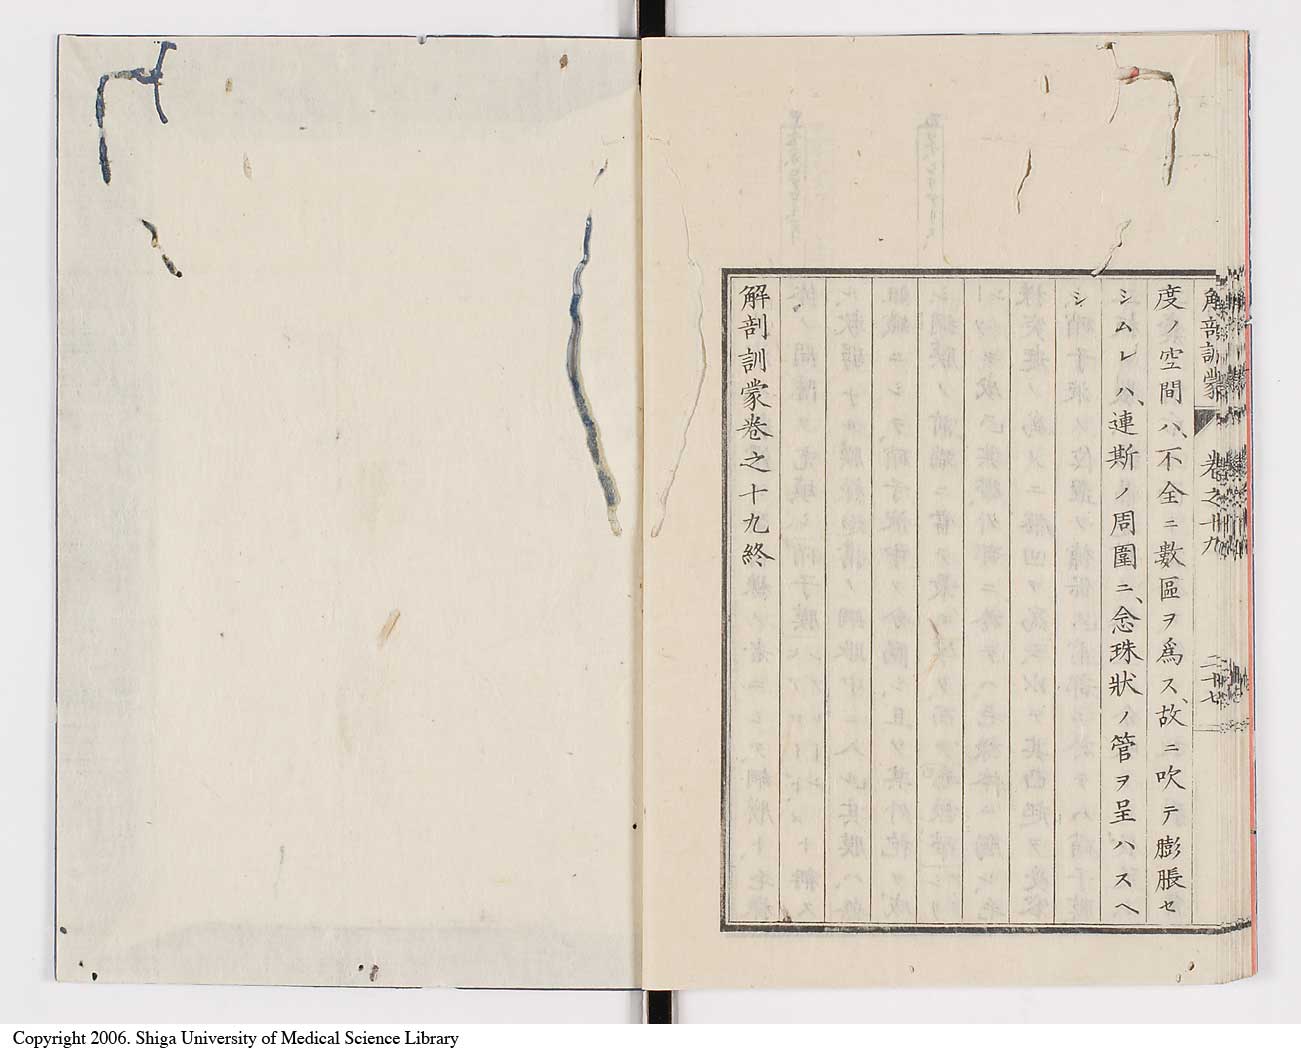 解剖訓蒙 卷之十九 二十七
度ノ空間ハ、不全ニ數區ヲ爲ス、故ニ吹テ膨脹セ
シムレハ、連斯ノ周圍ニ、念珠狀ノ管ヲ呈ハスヘ
シ
解剖訓蒙卷之十九終
Copyright 2006. Shiga University of Medical Science Library